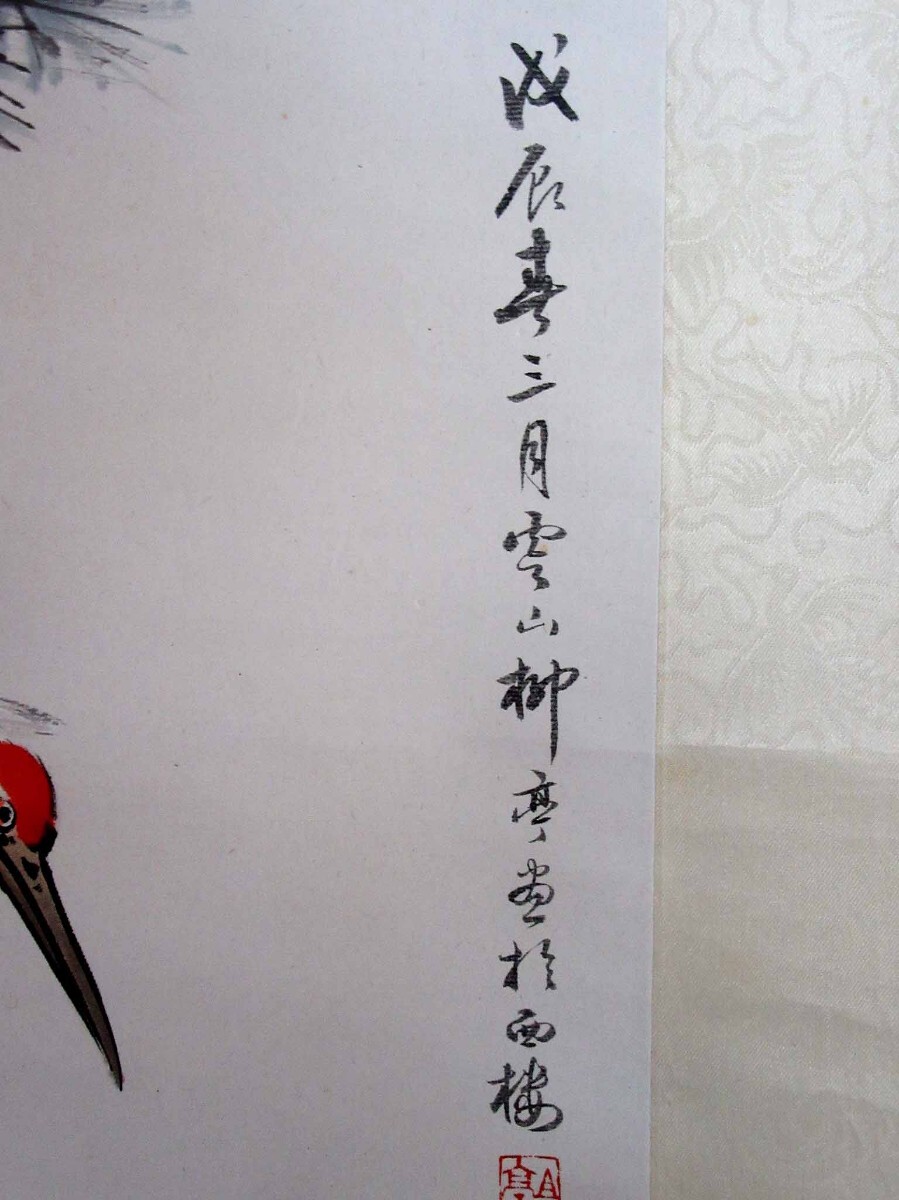 戊辰春三月雲山柳亭画於西楼